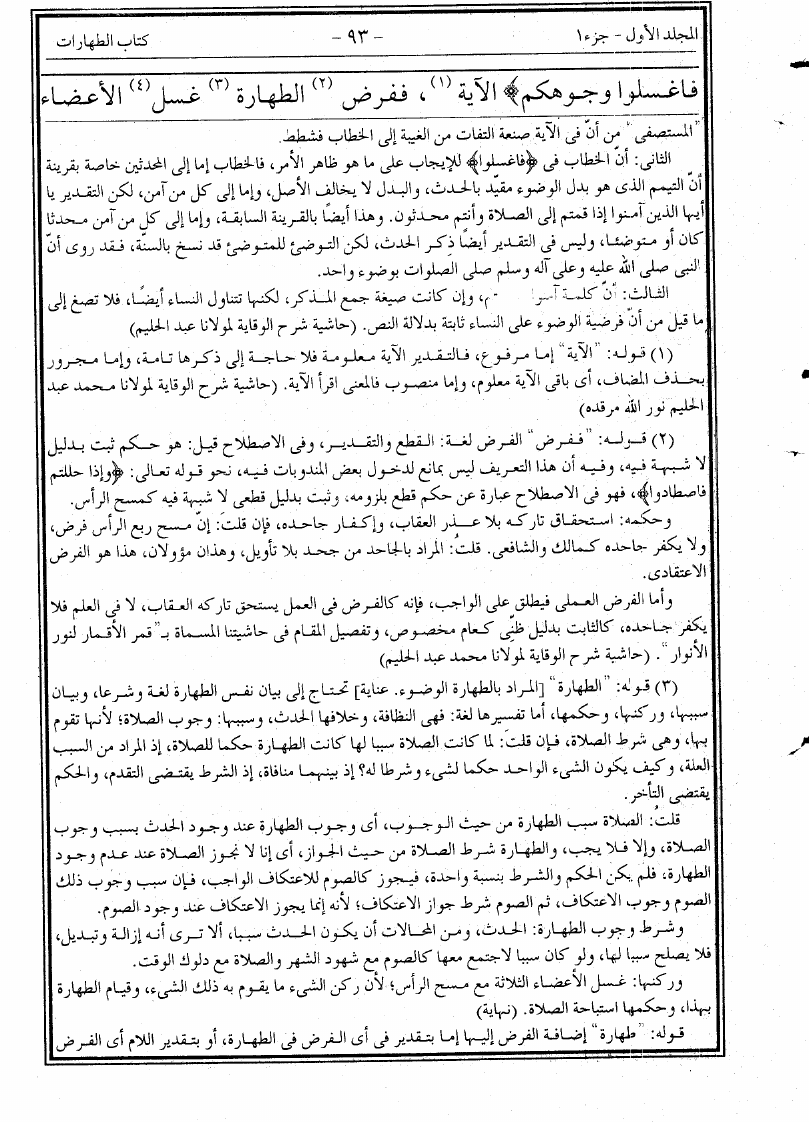 المجلد الأول - جزء١ - ٩٣ - كتاب الطهارات
فاغسلوا وجوهكم﴾ الآية (١)، ففرض (٢) الطهارة (٣) غسل (٤) الأعضاء
"المستصفى" من أنّ فى الآية صنعة التفات من الغيبة إلى الخطاب فشطط.
الثانى: أنّ الخطاب فى ﴿فاغسلوا﴾ للإيجاب على ما هو ظاهر الأمر، فالخطاب إما إلى المحدثين خاصة بقرينة
أنّ التيمم الذى هو بدل الوضوء مقيّد بالحدث، والبدل لا يخالف الأصل، وإما إلى كل من آمن، لكن التقدير يا
أيها الذين آمنوا إذا قمتم إلى الصلاة وأنتم محدثون. وهذا أيضًا بالقرينة السابقة، وإما إلى كل من آمن محدثا
كان أو متوضئا، وليس فى التقدير أيضًا ذكر الحدث، لكن التوضئ للمتوضئ قد نسخ بالسنّة، فقد روى أنّ
النبى صلى الله عليه وعلى آله وسلم صلى الصلوات بوضوء واحد.
الثالث: أنّ كلمة وإن كانت صيغة جمع المذكر، لكنها تتناول النساء أيضًا، فلا تصغ إلى
ما قيل من أنّ فرضية الوضوء على النساء ثابتة بدلالة النص. (حاشية شرح الوقاية لمولانا عبد الحليم)
(١) قوله: "الآية" إما مرفوع، فالتقدير الآية معلومة فلا حاجة إلى ذكرها تامة، وإما مجرور
بحذف المضاف، أى باقى الآية معلوم، وإما منصوب فالمعنى اقرأ الآية. (حاشية شرح الوقاية لمولانا محمد عبد
الحليم نور الله مرقده)
(٢) قوله: "ففرض" الفرض لغة: القطع والتقدير، وفى الاصطلاح قيل: هو حكم ثبت بدليل
لا شبهة فيه، وفيه أن هذا التعريف ليس بمانع لدخول بعض المندوبات فيه، نحو قوله تعالى: ﴿وإذا حللتم
فاصطادوا﴾، فهو فى الاصطلاح عبارة عن حكم قطع بلزومه، وثبت بدليل قطعى لا شبهة فيه كمسح الرأس.
وحكمه: استحقاق تاركه بلا عذر العقاب، وإكفار جاحده، فإن قلتَ: إن مسح ربع الرأس فرض،
ولا يكفر جاحده كمالك والشافعى. قلتُ: المراد بالجاحد من جحد بلا تأويل، وهذان مؤولان، هذا هو الفرض
الاعتقادى.
وأما الفرض العملى فيطلق على الواجب، فإنه كالفرض فى العمل يستحق تاركه العقاب، لا فى العلم فلا
يكفر جاحده، كالثابت بدليل ظنّى كعام مخصوص، وتفصيل المقام فى حاشيتنا المسماة بـ"قمر الأقمار لنور
الأنوار". (حاشية شرح الوقاية لمولانا محمد عبد الحليم)
(٣) قوله: "الطهارة" [المراد بالطهارة الوضوء. عناية] تحتاج إلى بيان نفس الطهارة لغة وشرعا، وبيان
سببها، وركنها، وحكمها، أما تفسيرها لغة: فهى النظافة، وخلافها الحدث، وسببها: وجوب الصلاة؛ لأنها تقوم
بها، وهى شرط الصلاة، فإن قلتَ: لما كانت الصلاة سببا لها كانت الطهارة حكما للصلاة، إذ المراد من السبب
العلة، وكيف يكون الشىء الواحد حكما لشىء وشرطا له؟ إذ بينهما منافاة، إذ الشرط يقتضى التقدم، والحكم
يقتضى التأخر.
قلتُ: الصلاة سبب الطهارة من حيث الوجوب، أى وجوب الطهارة عند وجود الحدث بسبب وجوب
الصلاة، وإلا فلا يجب، والطهارة شرط الصلاة من حيث الجواز، أى إنا لا نجوز الصلاة عند عدم وجود
الطهارة، فلم يكن الحكم والشرط بنسبة واحدة، فيجوز كالصوم للاعتكاف الواجب، فإن سبب وجوب ذلك
الصوم وجوب الاعتكاف، ثم الصوم شرط جواز الاعتكاف؛ لأنه إنما يجوز الاعتكاف عند وجود الصوم.
وشرط وجوب الطهارة: الحدث، ومن المحالات أن يكون الحدث سببا، ألا ترى أنه إزالة وتبديل،
فلا يصلح سببا لها، ولو كان سببا لاجتمع معها كالصوم مع شهود الشهر والصلاة مع دلوك الوقت.
وركنها: غسل الأعضاء الثلاثة مع مسح الرأس؛ لأن ركن الشىء ما يقوم به ذلك الشىء، وقيام الطهارة
بهذا، وحكمها استباحة الصلاة. (نهاية)
قوله: "طهارة" إضافة الفرض إليها إما بتقدير فى أى الفرض فى الطهارة، أو بتقدير اللام أى الفرض